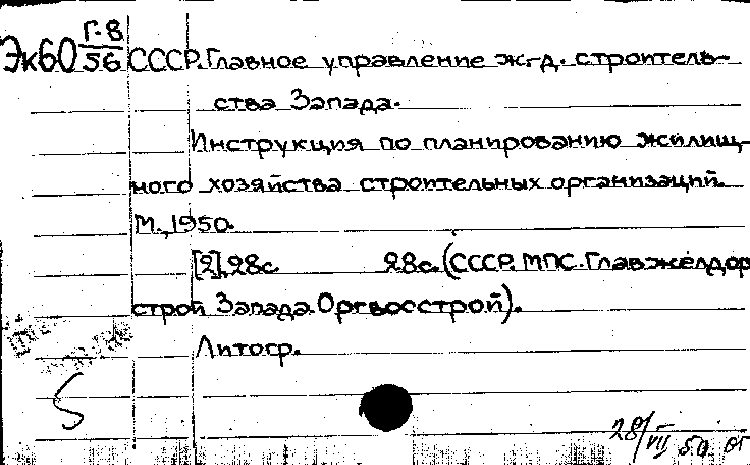 Эк60 Г-8/56 СССР. Главное управление ж.-д. строитель-
ства Запада.
Инструкция по планированию жилищ-
ного хозяйства строительных организаций.
М., 1950.
[2], 28с. 28с. (СССР. МПС. Главжелдор
строй Запада. Оргвосстрой).
Литогр.
28/VII 50